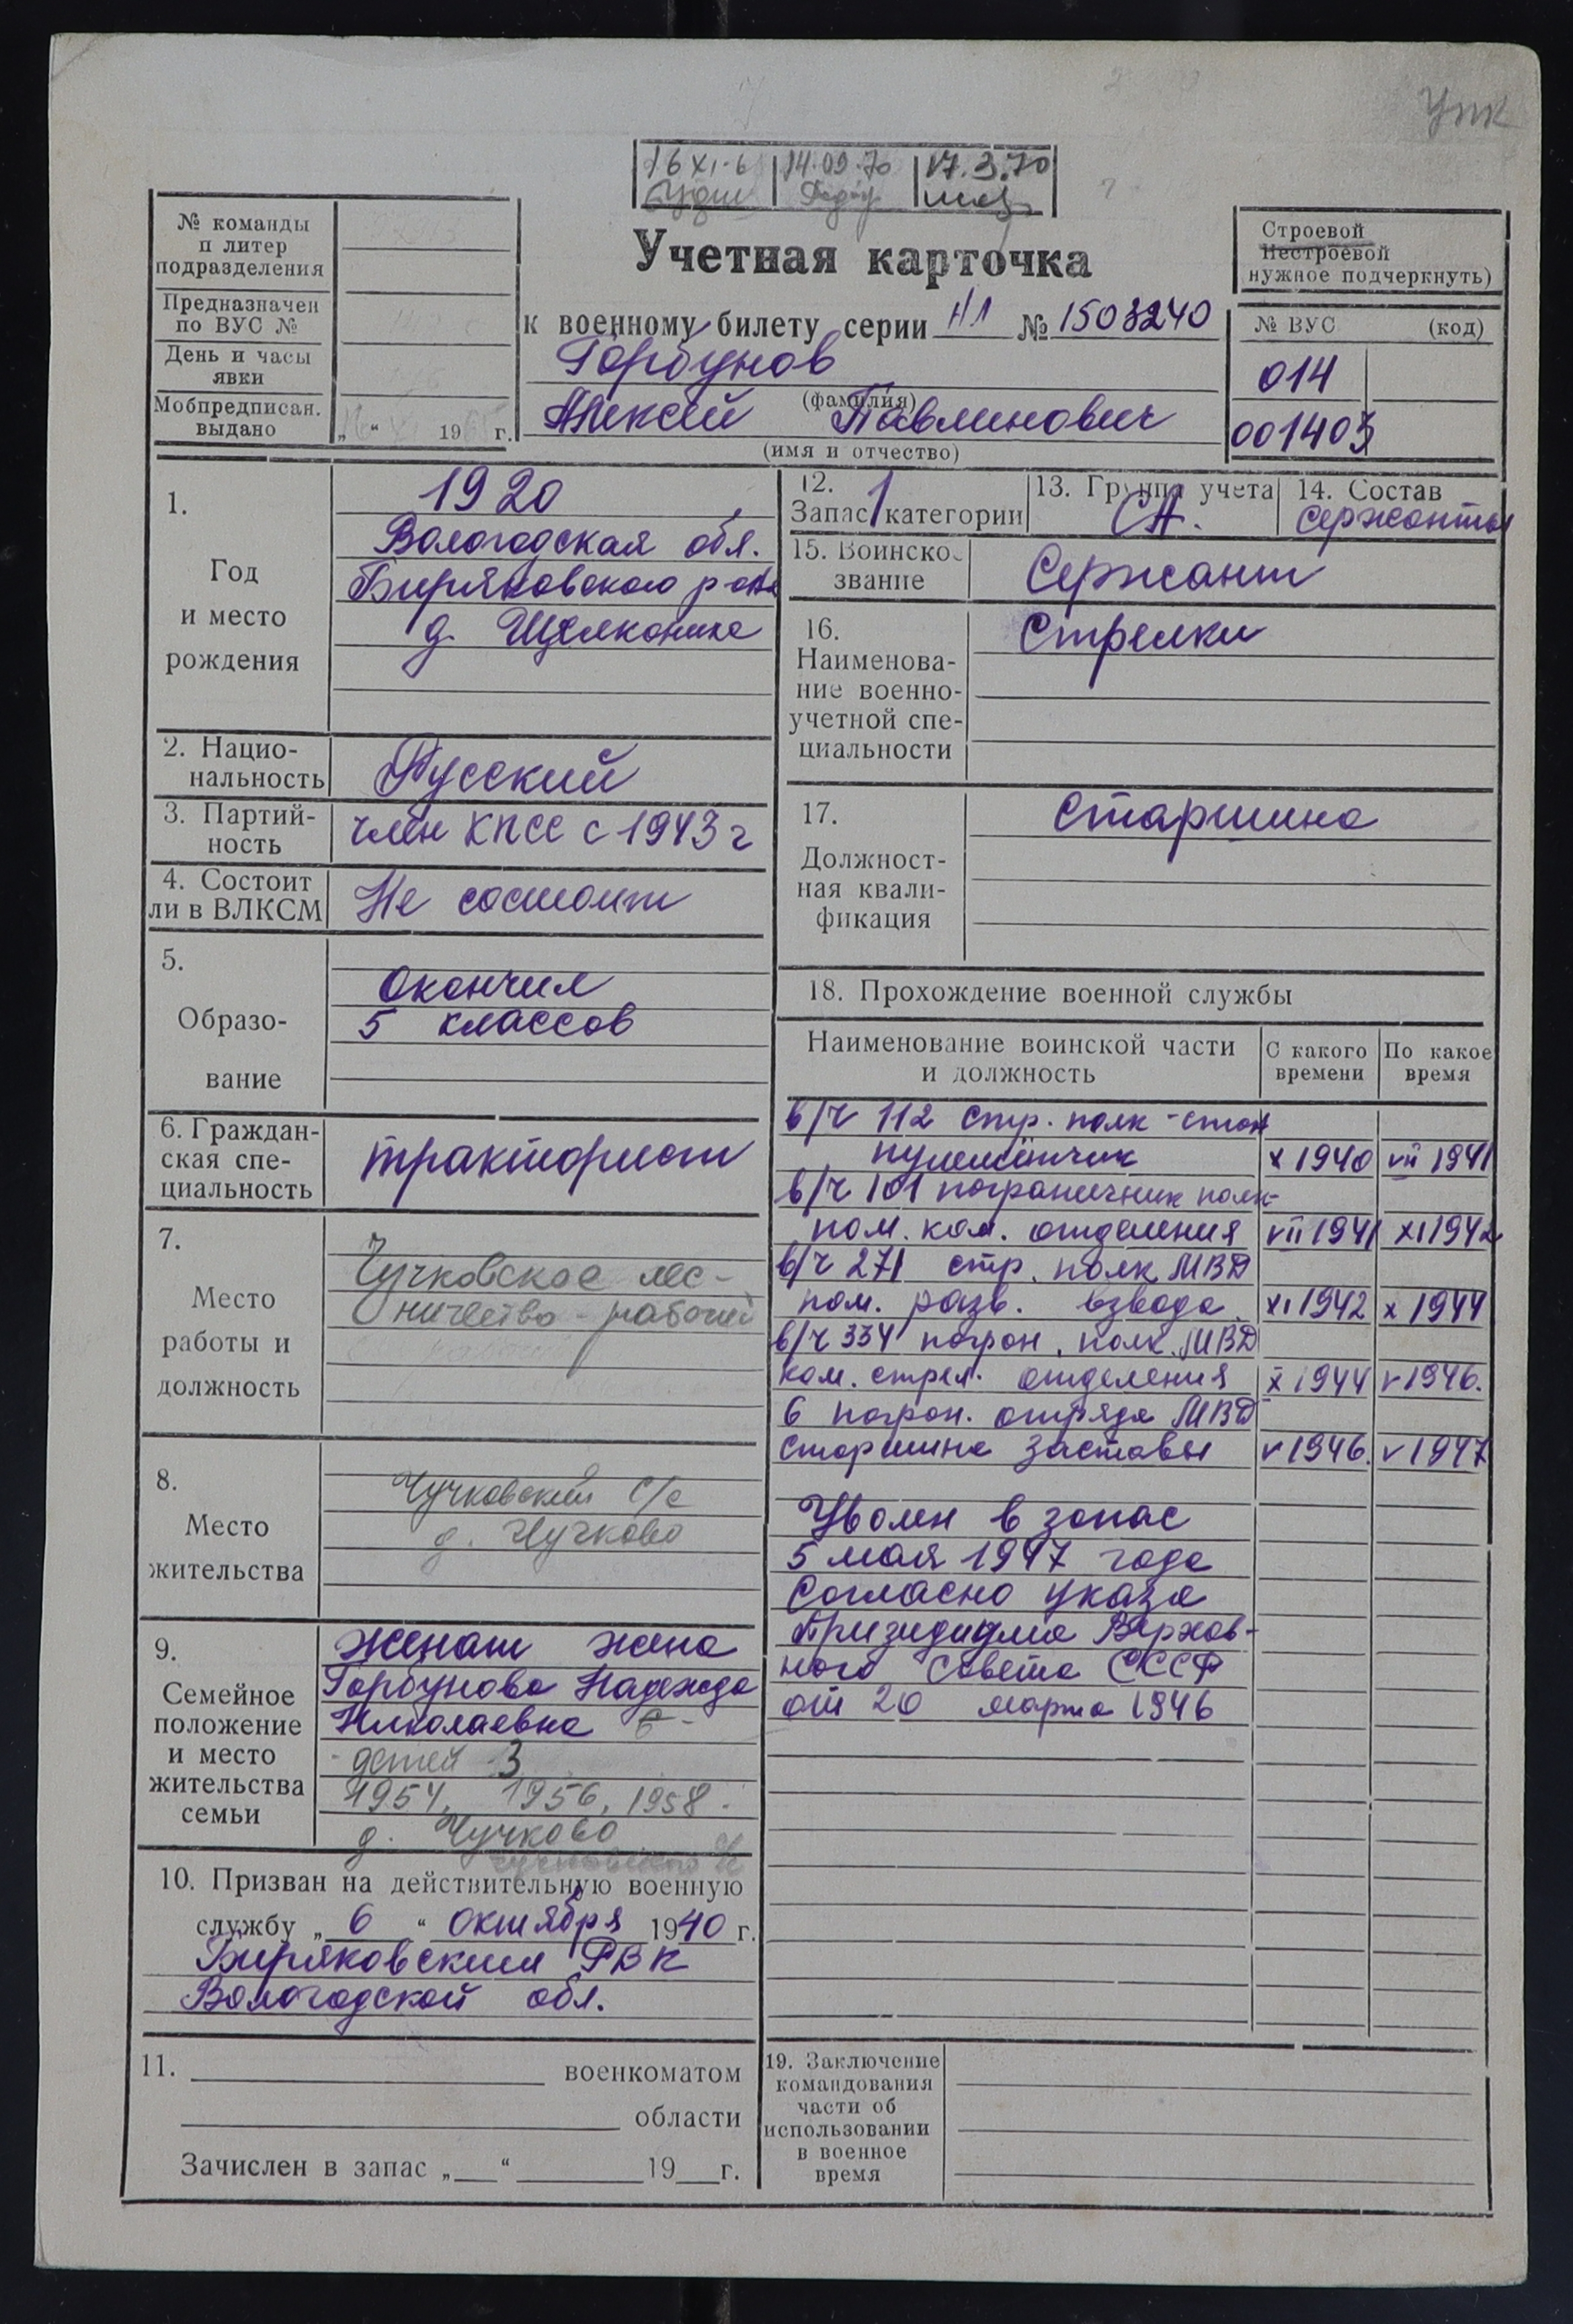 Упк
16 XI-6
14.09.70
17.3.70
№ команды
п литер
подразделения
Предназначен
по ВУС №
День и часы
явки
Мобпредписан.
выдано
„ “ 19 г.
Учетная карточка
к военному билету серии НЛ № 1503240
Горбунов
(фамилия)
Алексей Павлинович
(имя и отчество)
Строевой
Нестроевой
нужное подчеркнуть)
№ ВУС (код)
014
001403
1.
Год
и место
рождения
1920
Вологодская обл.
Биряковского р-на
д. Щелкониха
2. Нацио-
нальность
Русский
3. Партий-
ность
член КПСС с 1943 г
4. Состоит
ли в ВЛКСМ
Не состоит
5.
Образо-
вание
Окончил
5 классов
6. Граждан-
ская спе-
циальность
тракторист
7.
Место
работы и
должность
Чучковское лес-
ничество - рабочий
8.
Место
жительства
Чучковский с/с
д. Чучково
9.
Семейное
положение
и место
жительства
семьи
Женат жена
Горбунова Надежда
Николаевна
- детей - 3
1954, 1956, 1958.
д. Чучково
10. Призван на действительную военную
службу „ 6 “ октября 1940 г.
Биряковским РВК
Вологодской обл.
11. военкоматом
области
Зачислен в запас „ “ 19 г.
12.
Запас 1 категории
13. Группа учета
СА.
14. Состав
сержанты
15. Воинское
звание
Сержант
16.
Наименова-
ние военно-
учетной спе-
циальности
Стрелки
17.
Должност-
ная квали-
фикация
Старшина
18. Прохождение военной службы
Наименование воинской части
и должность
С какого
времени
По какое
время
в/ч 112 стр. полк - стан
пулемётчик X 1940 VII 1941
в/ч 101 пограничник полк-
пом. ком. отделения VII 1941 XI 1942
в/ч 271 стр. полк МВД
пом. разв. взвода XI 1942 X 1944
в/ч 334 погран. полк МВД
ком. стрел. отделения X 1944 V 1946.
6 погран. отряда МВД
старшина заставы V 1946. V 1947
Уволен в запас
5 мая 1947 года
Согласно указа
Призидиума Верхов-
ного Совета СССР
от 20 марта 1946
19. Заключение
командования
части об
использовании
в военное
время